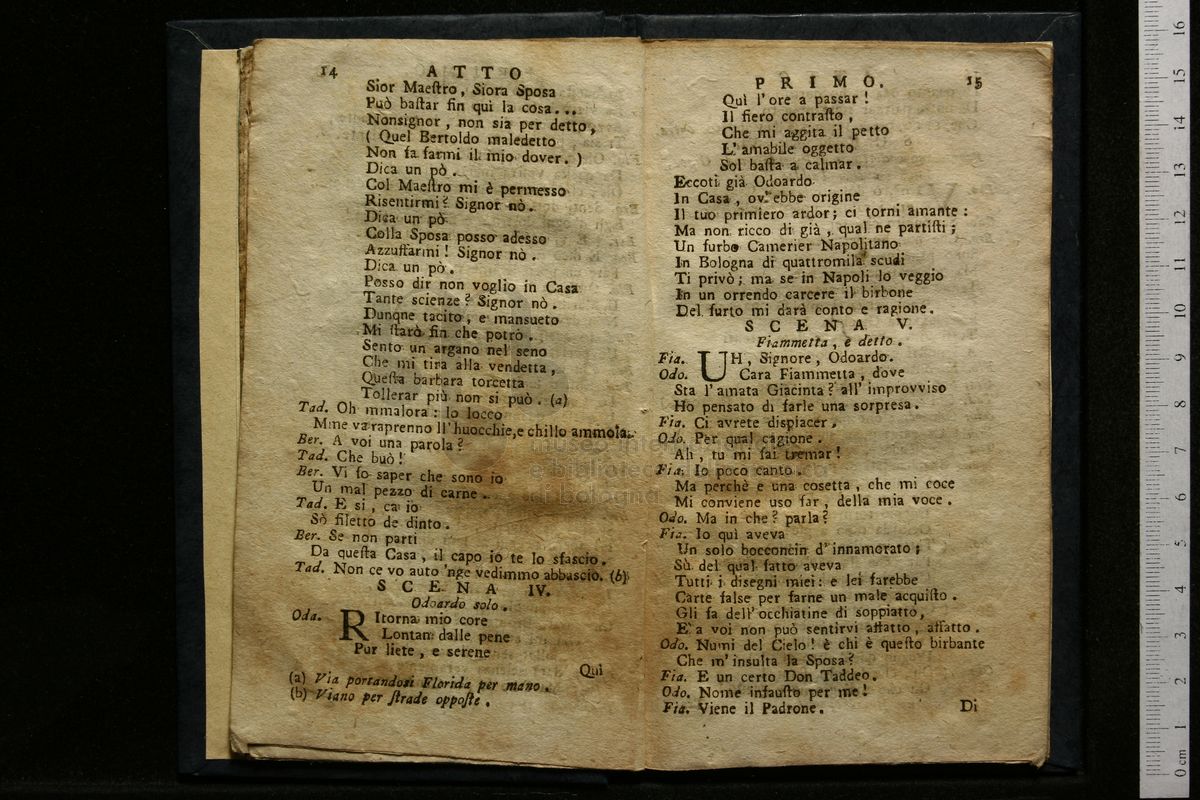 14 ATTO
Sior Maeſtro, Siora Spoſa
Può baſtar fin quì la coſa...
Nonsignor, non sia per detto,
( Quel Bertoldo maledetto
Non fa farmi il mio dover. )
Dica un pò.
Col Maeſtro mi è permesso
Risentirmi? Signor nò.
Dica un pò
Colla Sposa posso adesso
Azzuffarmi! Signor nò.
Dica un pò.
Posso dir non voglio in Casa
Tante scienze? Signor nò.
Dunqne tacito, e mansueto
Mi ſtarò fin che potrò.
Sento un argano nel seno
Che mi tira alla vendetta,
Queſta barbara torcetta
Tollerar più non si può. (a)
Tad. Oh mmalora: lo locco
Mme va raprenno ll'huocchie, e chillo ammola.
Ber. A voi una parola?
Tad. Che buò!
Ber. Vi fo saper che sono io
Un mal pezzo di carne.
Tad. E si, ca io
Sò filetto de dinto.
Ber. Se non parti
Da queſta Casa, il capo io te lo sfascio.
Tad. Non ce vo auto 'nge vedimmo abbascio. (b)
SCENA IV.
Odoardo solo.
Oda. RItorna mio core
Lontan dalle pene
Pur liete, e serene
Quì
(a) Via portandosi Florida per mano.
(b) Viano per ſtrade oppoſte.
PRIMO. 15
Quì l'ore a passar!
Il fiero contraſto,
Che mi aggita il petto
L'amabile oggetto
Sol baſta a calmar.
Eccoti già Odoardo
In Casa, ov'ebbe origine
Il tuo primiero ardor; ci torni amante:
Ma non ricco di già, qual ne partiſti;
Un furbo Camerier Napolitano
In Bologna di quattromila scudi
Ti privò; ma se in Napoli lo veggio
In un orrendo carcere il birbone
Del furto mi darà conto e ragione.
SCENA V.
Fiammetta, e detto.
Fia. UH, Signore, Odoardo.
Odo. Cara Fiammetta, dove
Sta l'amata Giacinta? all'improvviso
Ho pensato di farle una sorpresa.
Fia. Ci avrete dispiacer.
Odo. Per qual cagione.
Ah, tu mi fai tremar!
Fia. Io poco canto.
Ma perchè e una cosetta, che mi coce
Mi conviene uso far, della mia voce.
Odo. Ma in che? parla?
Fia. Io quì aveva
Un solo bocconcin d'innamorato;
Sù del qual fatto aveva
Tutti i disegni miei: e lei farebbe
Carte false per farne un male acquiſto.
Gli fa dell'occhiatine di soppiatto,
E a voi non può sentirvi affatto, affatto.
Odo. Numi del Cielo! è chi è queſto birbante
Che m'insulta la Sposa?
Fia. E un certo Don Taddeo.
Odo. Nome infauſto per me!
Fia. Viene il Padrone.
Di